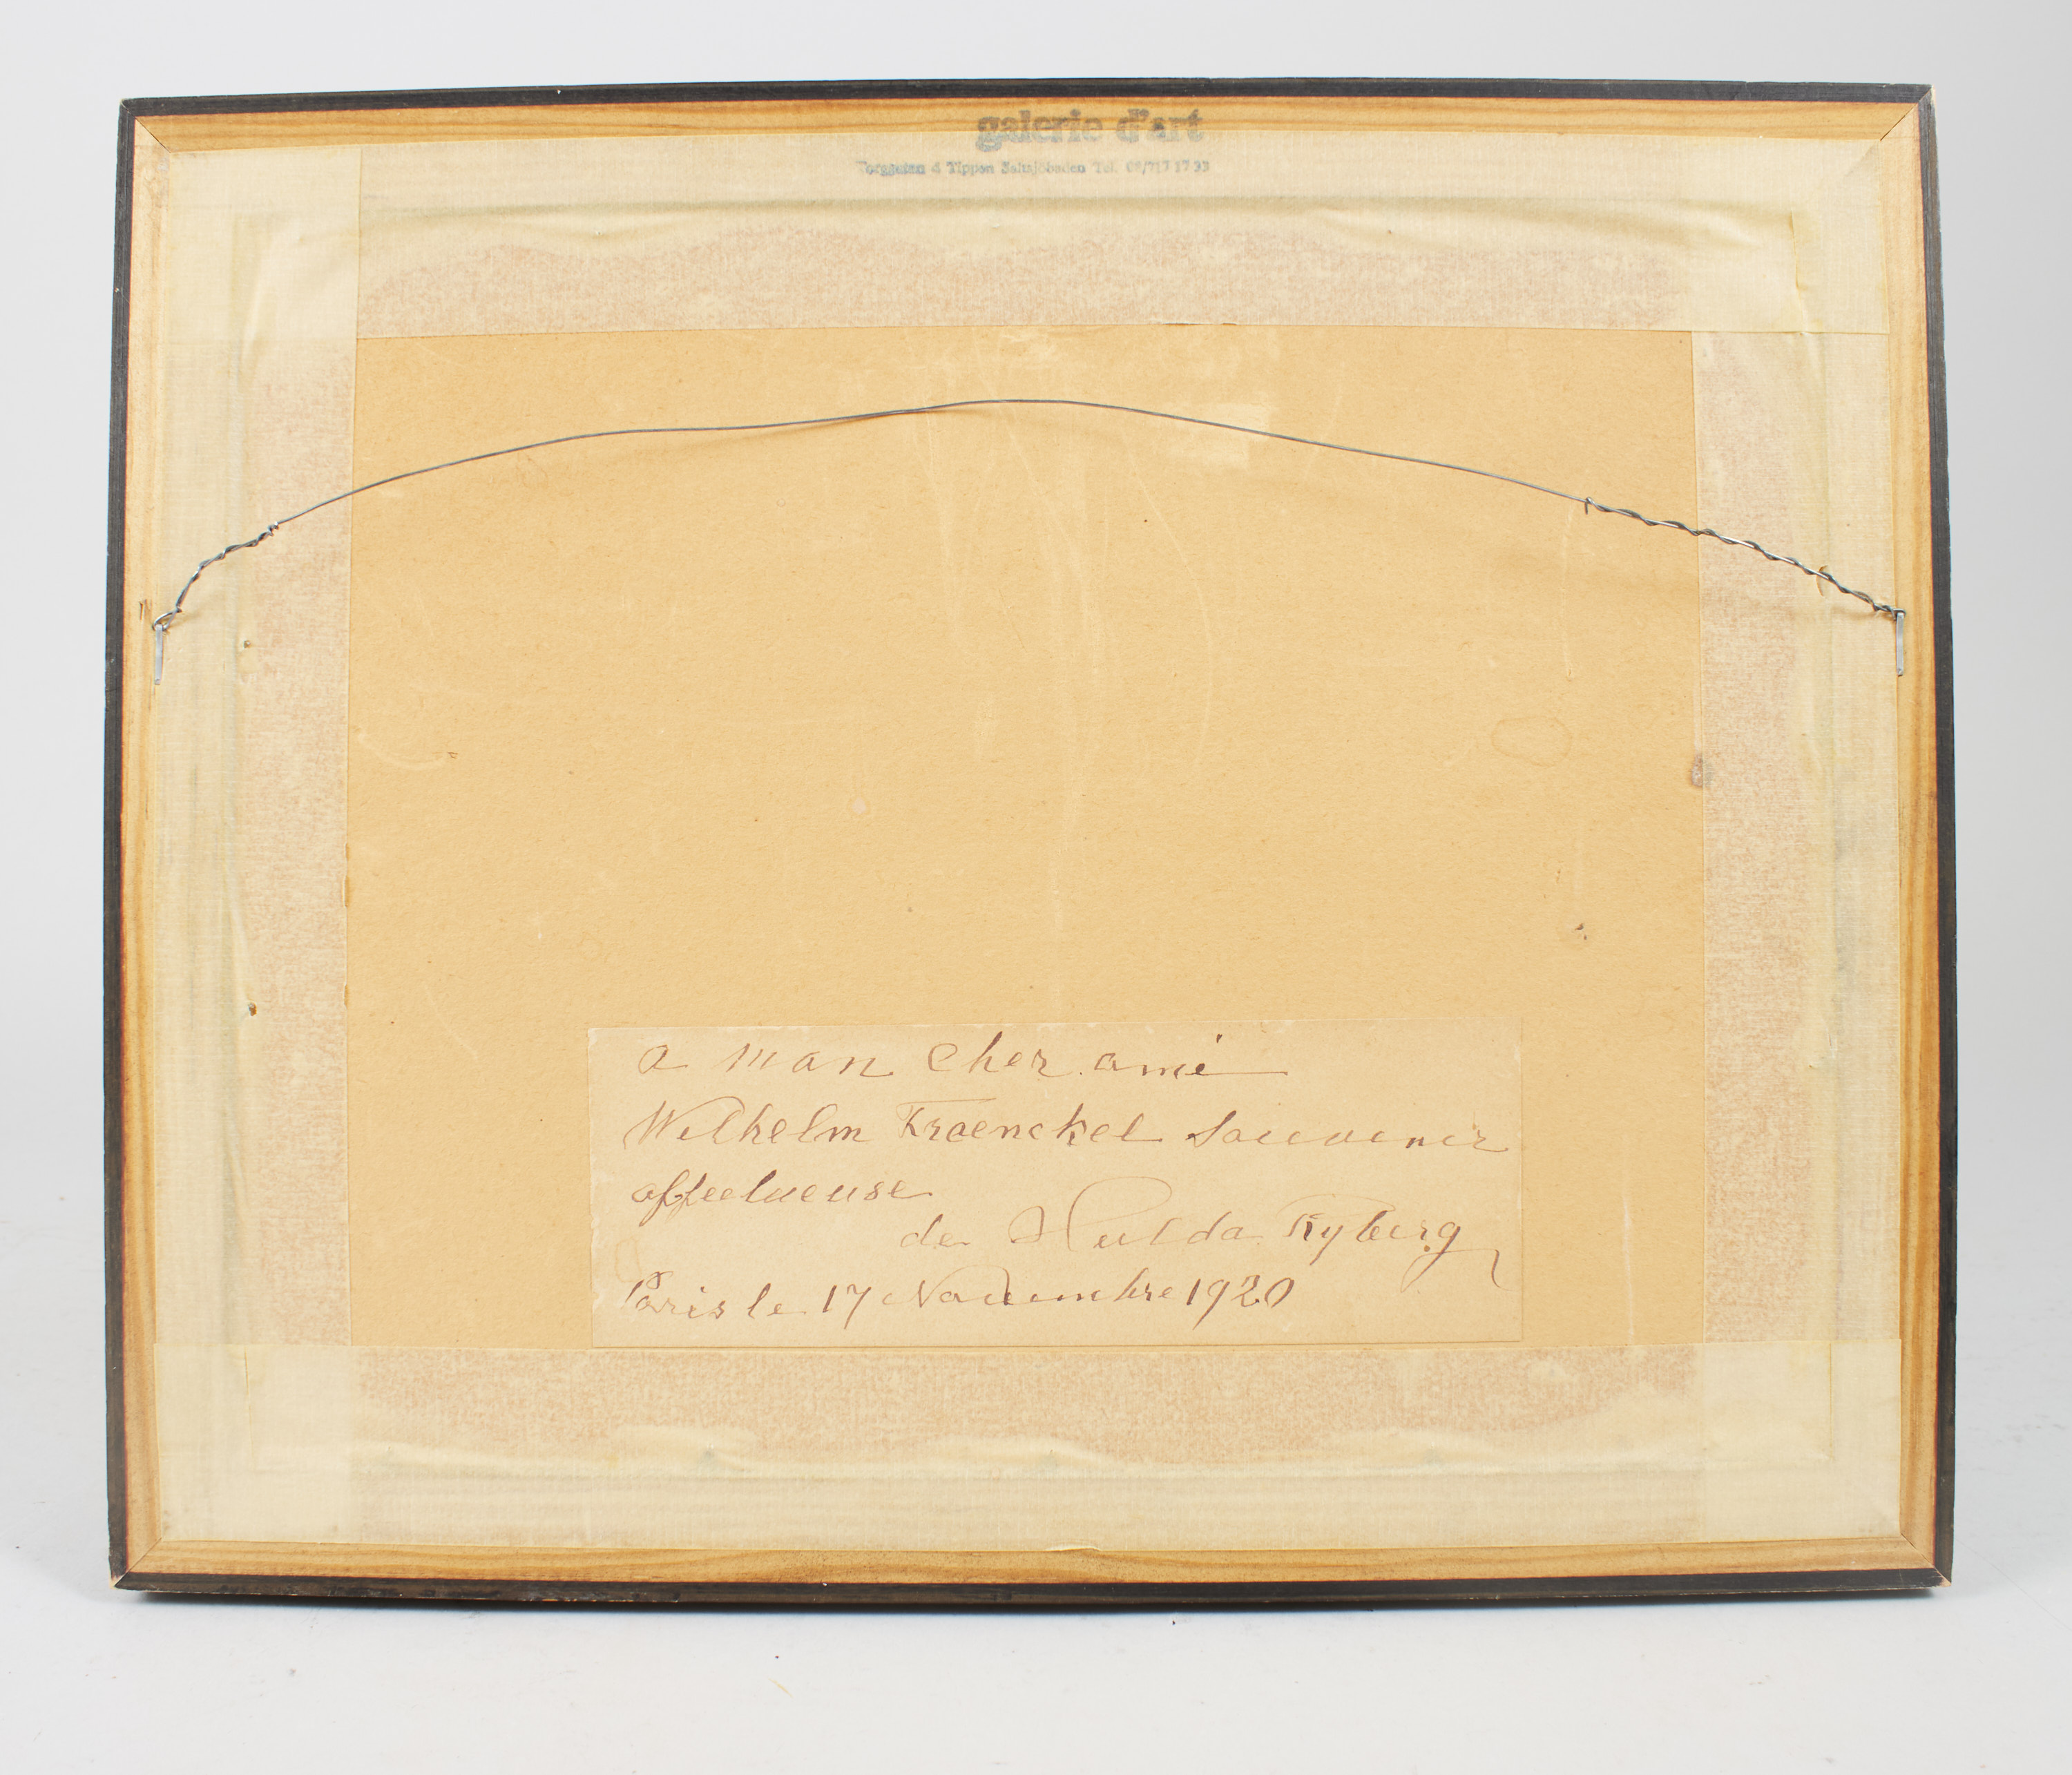 galerie d'art
Torggatan 4 Tippen Saltsjöbaden Tel. 08/717 17 33
a mon cher ami
Wilhelm Kraenckel Souvenir
affectueuse
de Hulda Kyberg
Paris le 17 Novembre 1920